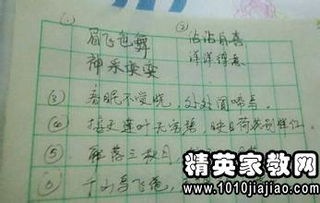 (1) (2)
眉飞色舞 沾沾自喜
神采奕奕 洋洋得意
(3) 春眠不觉晓，处处闻啼鸟。
(4) 接天莲叶无穷碧，映日荷花别样红。
(5) 解落三秋
(6) 千 鸟飞绝，
精英家教网
www.1010jiajiao.com